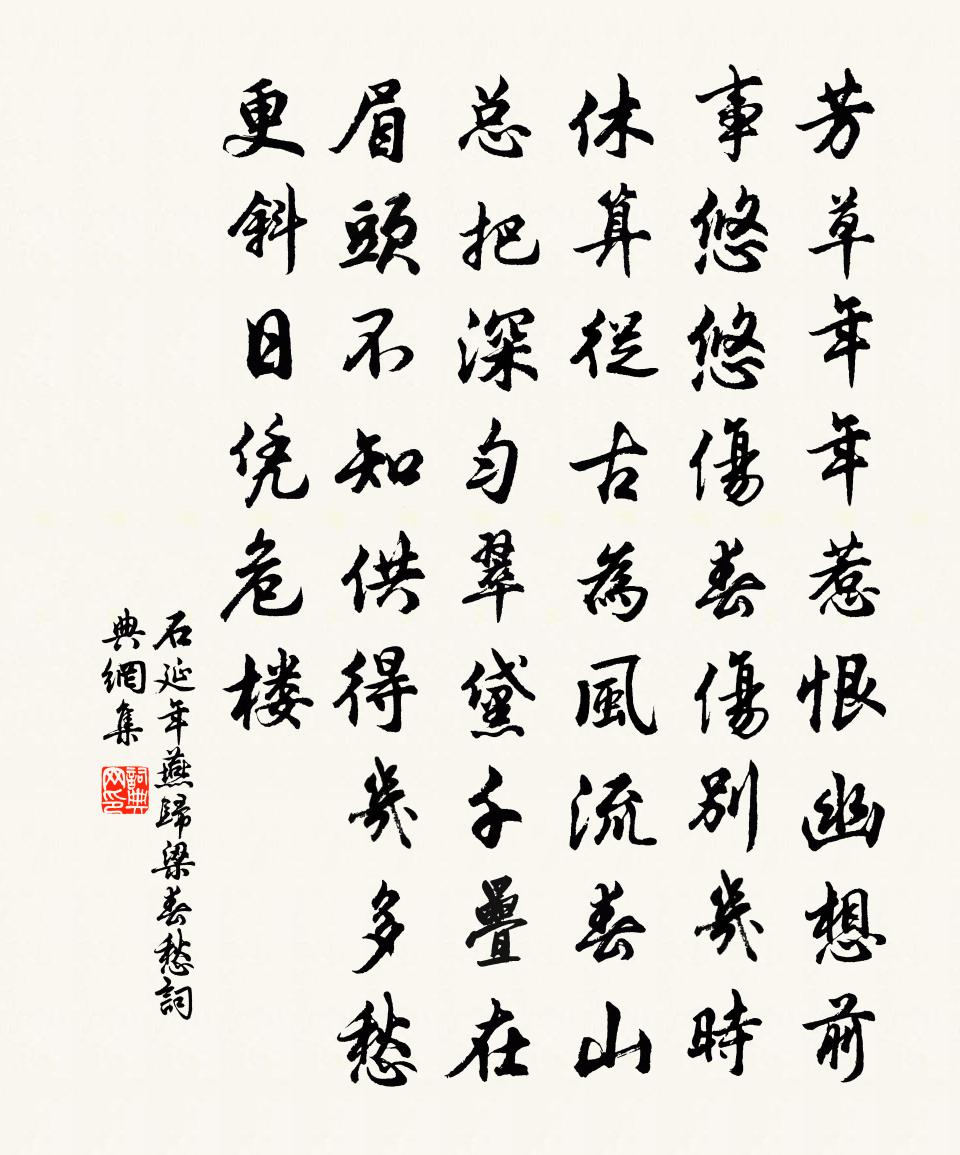 芳草年年惹恨幽想前
事悠悠傷春傷別幾時
休算從古為風流春山
总把深匀翠黛千疊在
眉頭不知供得幾多愁
更斜日凭危楼
石延年燕歸梁春愁詞
典網集
詞典
网印